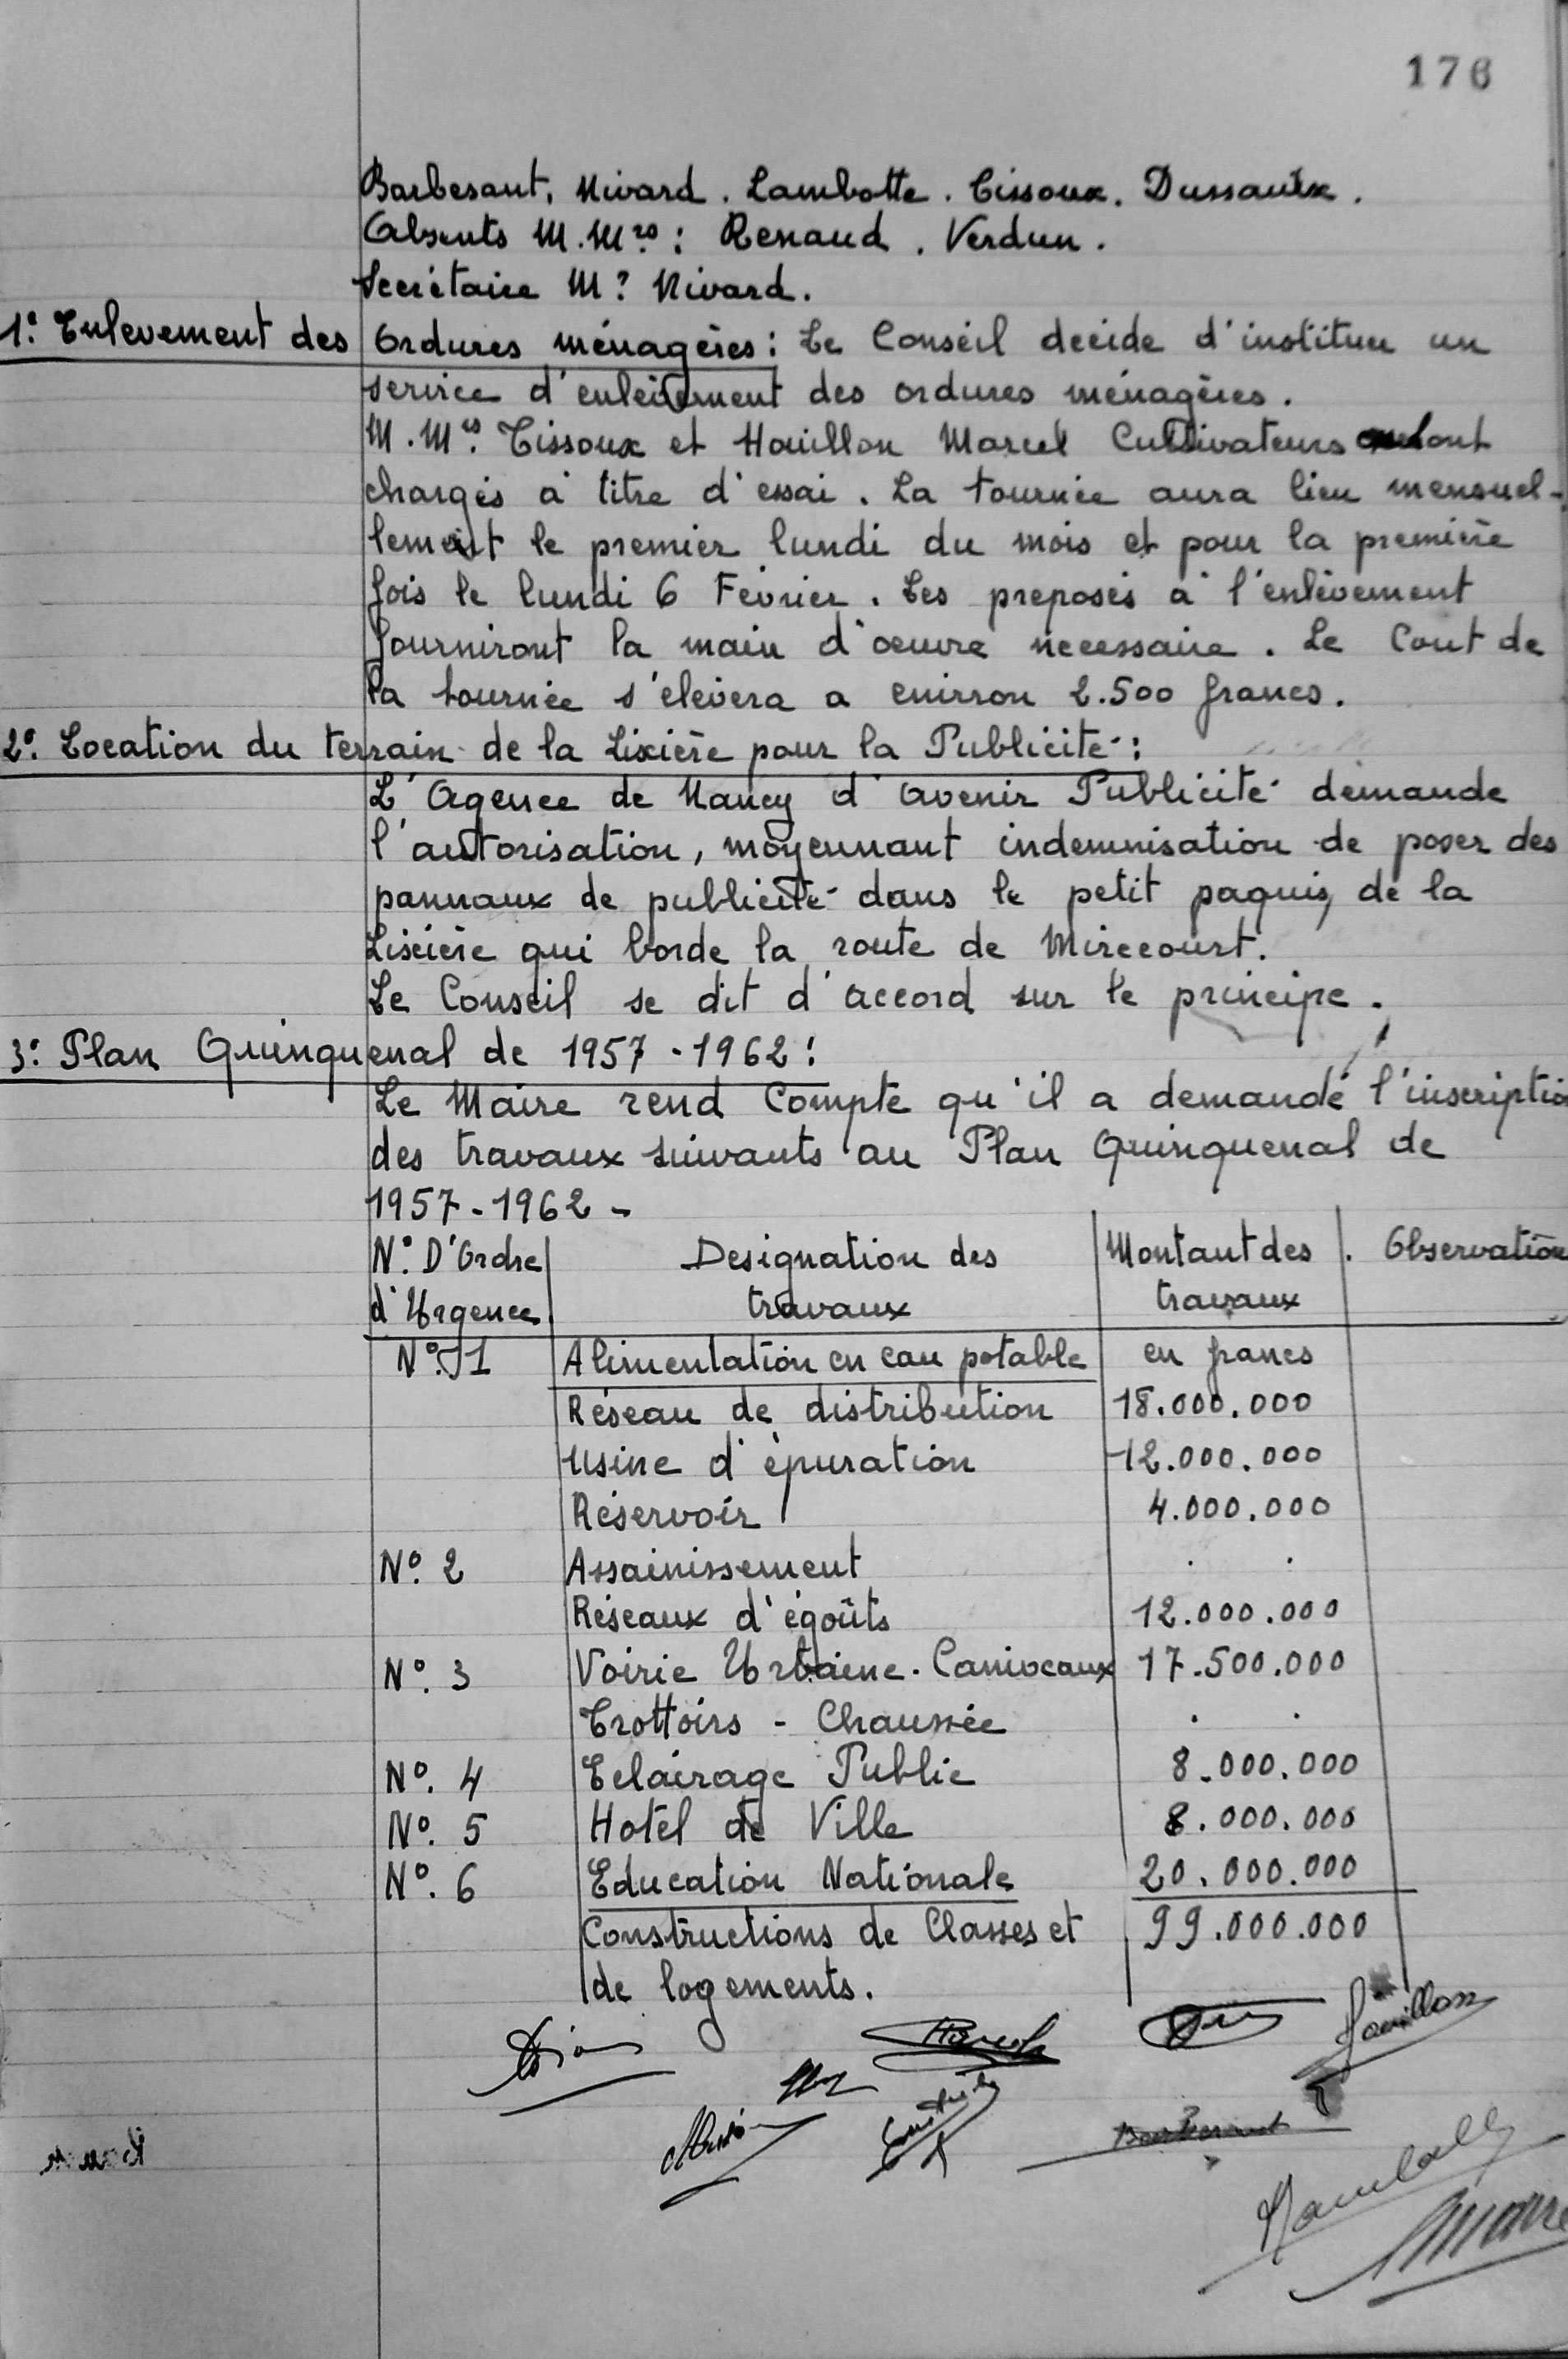 176
Barbesant, Nivard. Lambotte. Tissoux. Dussaulx.
Absents M.Mrs: Renaud. Verdun.
Secrétaire Mr Nivard.
1º Enlevement des Ordures ménagères: Le Conseil decide d'instituer un
service d'enlèvement des ordures ménagères.
M.Mrs. Tissoux et Houillon Marcel Cultivateurs en sont
chargés à titre d'essai. La tournée aura lieu mensuel-
lement le premier lundi du mois et pour la première
fois le lundi 6 Fevrier. Les preposés à l'enlèvement
fourniront la main d'oeuvre necessaire. Le Cout de
la tournée s'elèvera a environ 2.500 francs.
2º. Location du terrain de la Lixière pour la Publicité:
L'Agence de Nancy d'Avenir Publicité demande
l'autorisation, moyennant indemnisation de poser des
pannaux de publicité dans le petit paquis, de la
Lixière qui borde la route de Mirecourt.
Le Conseil se dit d'accord sur le principe.
3º. Plan Quinquenal de 1957-1962:
Le Maire rend Compte qu'il a demandé l'inscriptio
des travaux suivants au Plan Quinquenal de
1957-1962-
N° D'Ordre Designation des Montant des Observation
d'Urgence travaux travaux
N° 1 Alimentation en eau potable en francs
Réseau de distribution 18.000.000
Usine d'épuration 12.000.000
Réservoir 4.000.000
N° 2 Assainissement
Réseaux d'égoûts 12.000.000
N° 3 Voirie Urbaine. Caniveaux 17.500.000
Trottoirs - Chaussée
N° 4 Eclairage Public 8.000.000
N° 5 Hotel de Ville 8.000.000
N° 6 Education Nationale 20.000.000
Constructions de Classes et 99.000.000
de logements.
Houillon
Barbesant
Lambotte